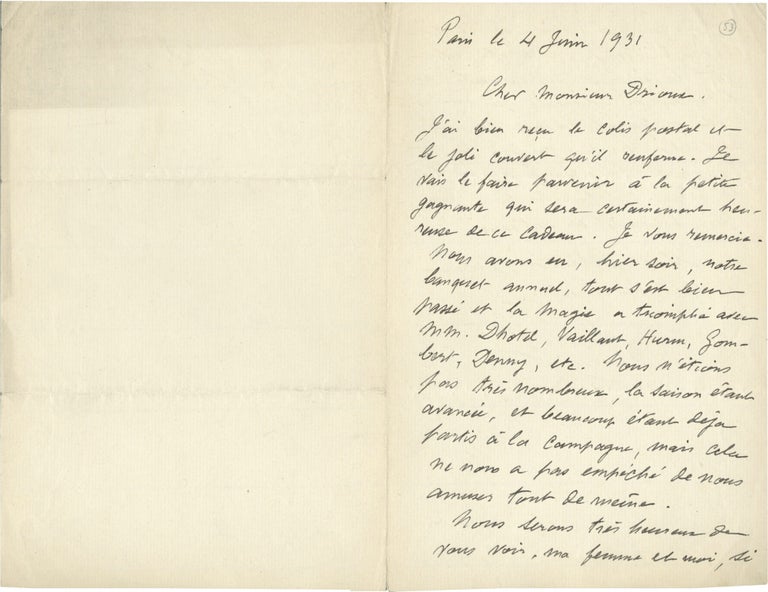 53
Paris le 4 Juin 1931
Cher Monsieur Drioux.
J'ai bien reçu le colis postal et
le joli couvert qu'il renferme. Je
vais le faire parvenir à la petite
gagnante qui sera certainement heu-
reuse de ce cadeau. Je vous remercie.
Nous avons eu, hier soir, notre
banquet annuel, tout s'est bien
passé et la magie a triomphé avec
MM. Dhotel, Vaillant, Hurm, Gom-
bert, Denny, etc. Nous n'étions
pas très nombreux, la saison étant
avancée, et beaucoup étant déja
partis à la campagne, mais cela
ne nous a pas empéché de nous
amuser tout de même.
Nous serons très heureux de
vous voir, ma femme et moi, si